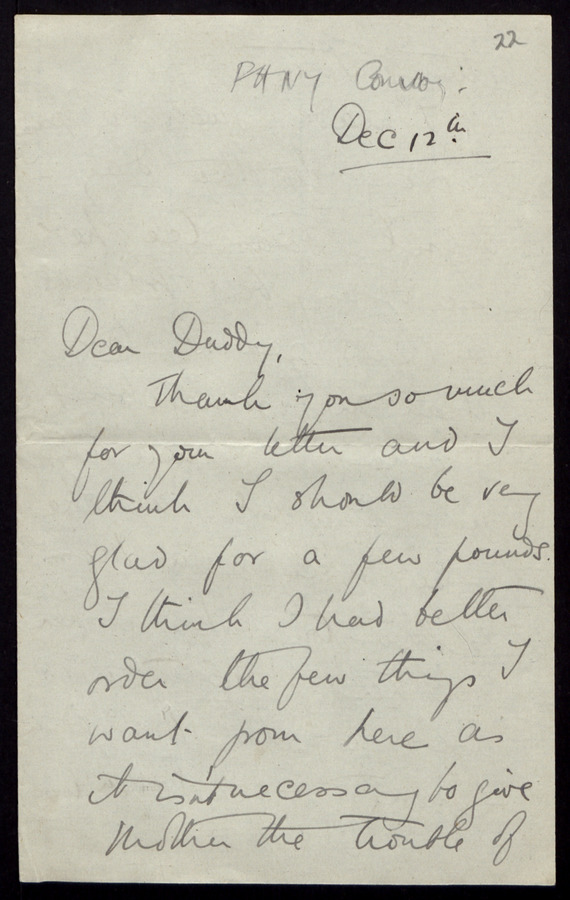 22
FANY Convoy:
Dec 12th
Dear Daddy,
Thank you so much
for your letter and I
think I should be very
glad for a few pounds.
I think I had better
order the few things I
want from here as
it isn't necessary to give
Mother the trouble of